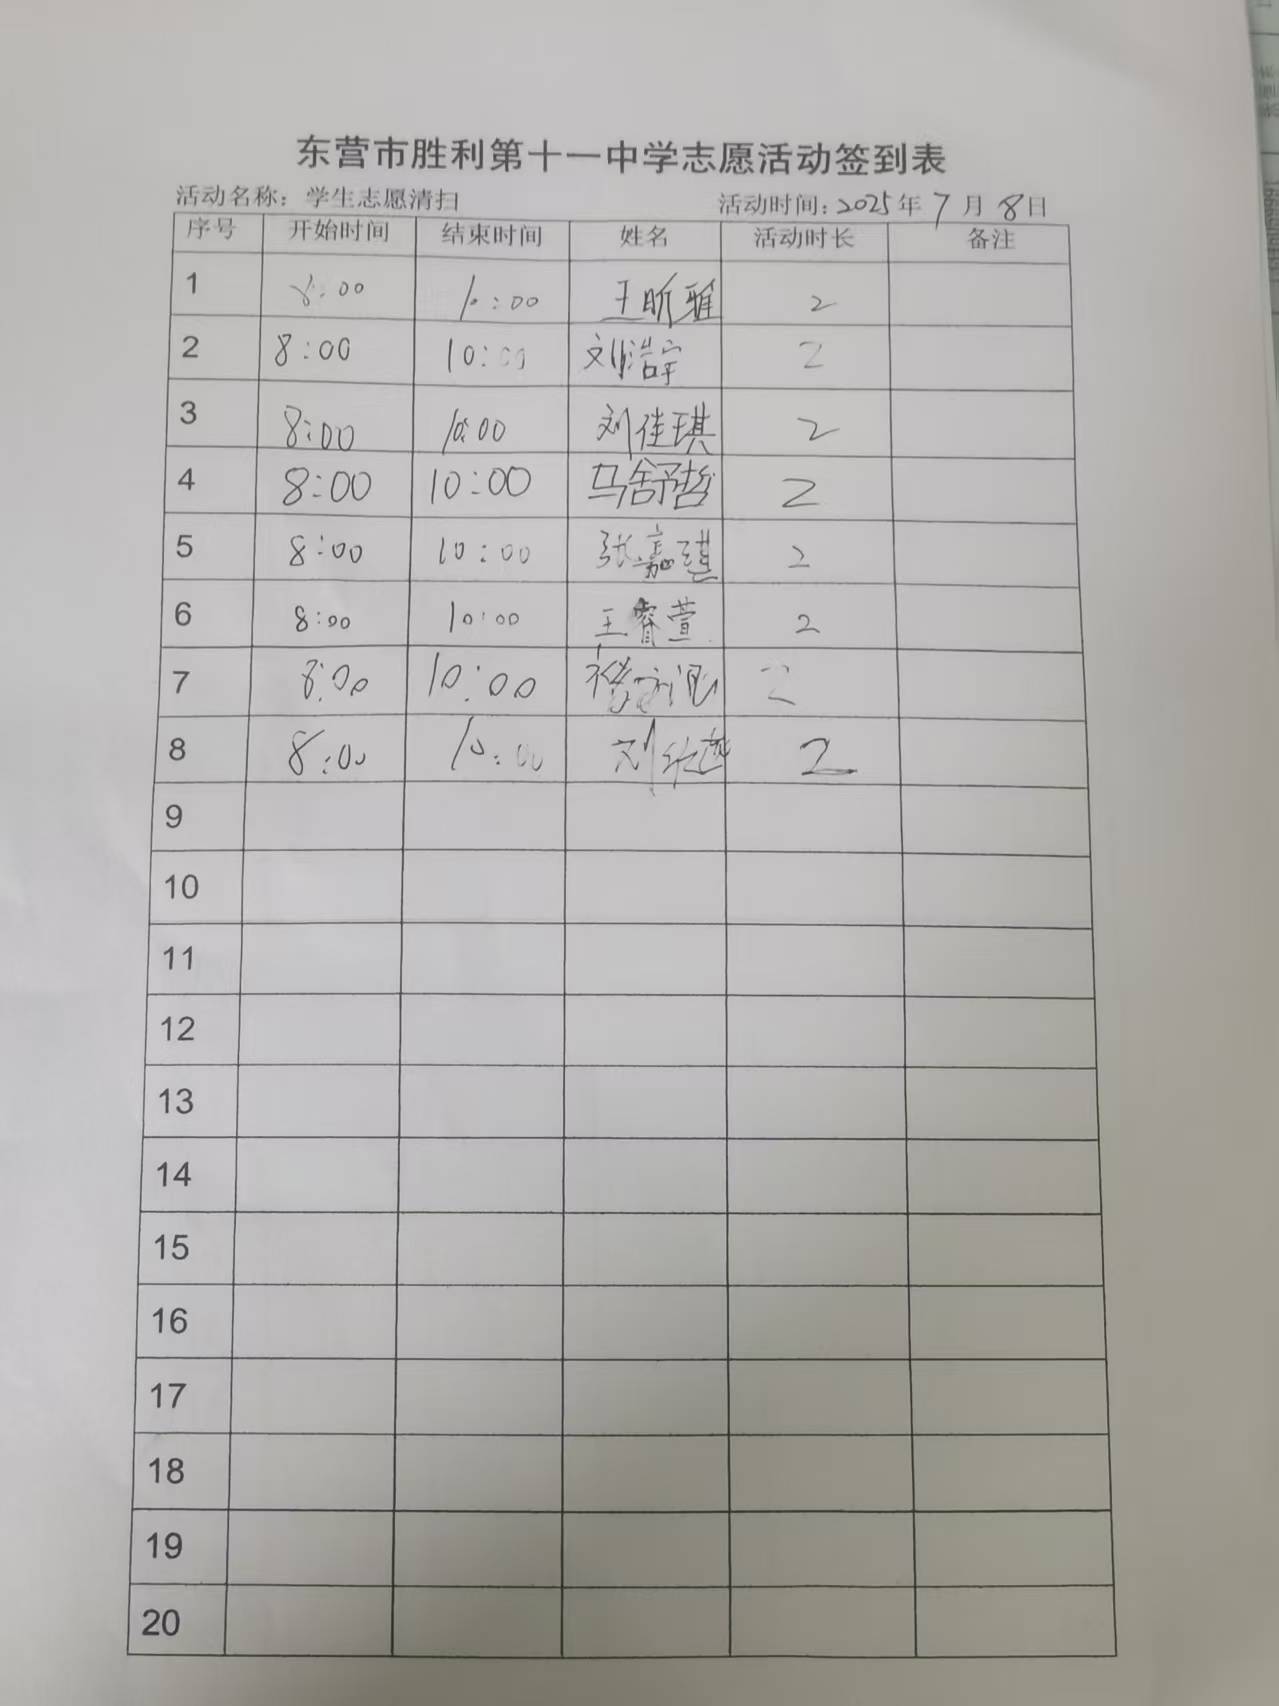 东营市胜利第十一中学志愿活动签到表
活动名称：学生志愿清扫 活动时间：2025年7月8日
序号 开始时间 结束时间 姓名 活动时长 备注
1 8:00 10:00 王昕雅 2
2 8:00 10:00 刘浩宇 2
3 8:00 10:00 刘佳琪 2
4 8:00 10:00 马舒哲 2
5 8:00 10:00 张嘉琪 2
6 8:00 10:00 王睿萱 2
7 8:00 10:00 2
8 8:00 10:00 刘 2
9
10
11
12
13
14
15
16
17
18
19
20